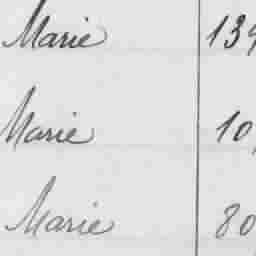 Marie 139
Marie 10
Marie 80